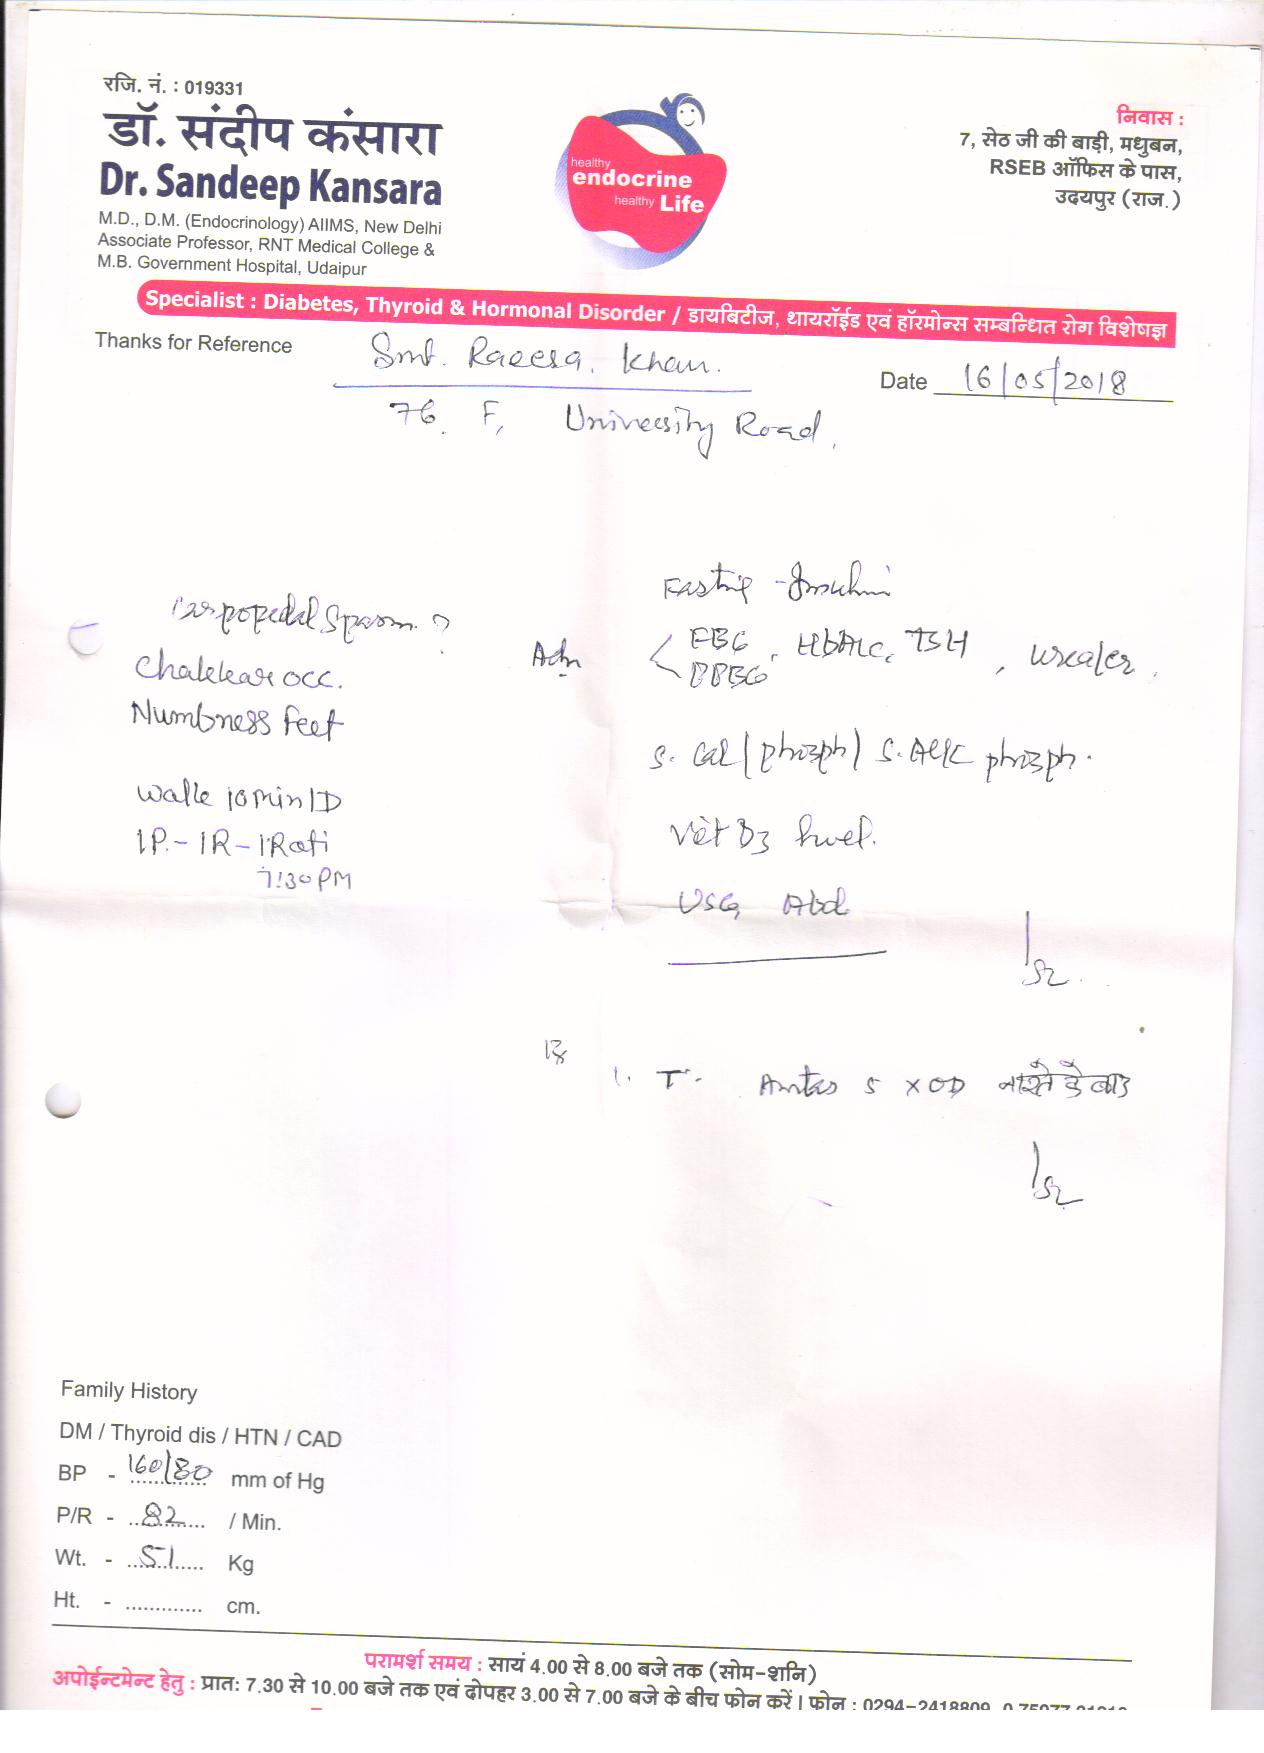 रजि. नं. : 019331
डॉ. संदीप कंसारा
Dr. Sandeep Kansara
M.D., D.M. (Endocrinology) AIIMS, New Delhi
Associate Professor, RNT Medical College &
M.B. Government Hospital, Udaipur
healthy
endocrine
healthy Life
निवास :
7, सेठ जी की बाड़ी, मधुबन,
RSEB ऑफिस के पास,
उदयपुर (राज.)
Specialist : Diabetes, Thyroid & Hormonal Disorder / डायबिटीज, थायरॉईड एवं हॉरमोन्स सम्बन्धित रोग विशेषज्ञ
Thanks for Reference Smt. Raeesa. Khan.
Date 16/05/2018
76. F, University Road.
Carpopedal Spasm. ?
Chakkar occ.
Numbness Feet
walk 10 min 1D
1P.- 1R - 1Roti
7:30 PM
Fasting - Insulin
Adv FBG, HbA1c, TSH, urea/cr
PPBG
S. Cal / phosph / S. Alk phosph.
Vit D3 level.
USG Abd
Rx
1. T. 5 x OD नाश्ते के बाद
Family History
DM / Thyroid dis / HTN / CAD
BP - 160/80 mm of Hg
P/R - 82 / Min.
Wt. - 51 Kg
Ht. - ............. cm.
परामर्श समय : सायं 4.00 से 8.00 बजे तक (सोम-शनि)
अपोईन्टमेन्ट हेतु : प्रात: 7.30 से 10.00 बजे तक एवं दोपहर 3.00 से 7.00 बजे के बीच फोन करें। फोन : 0294-2418809,